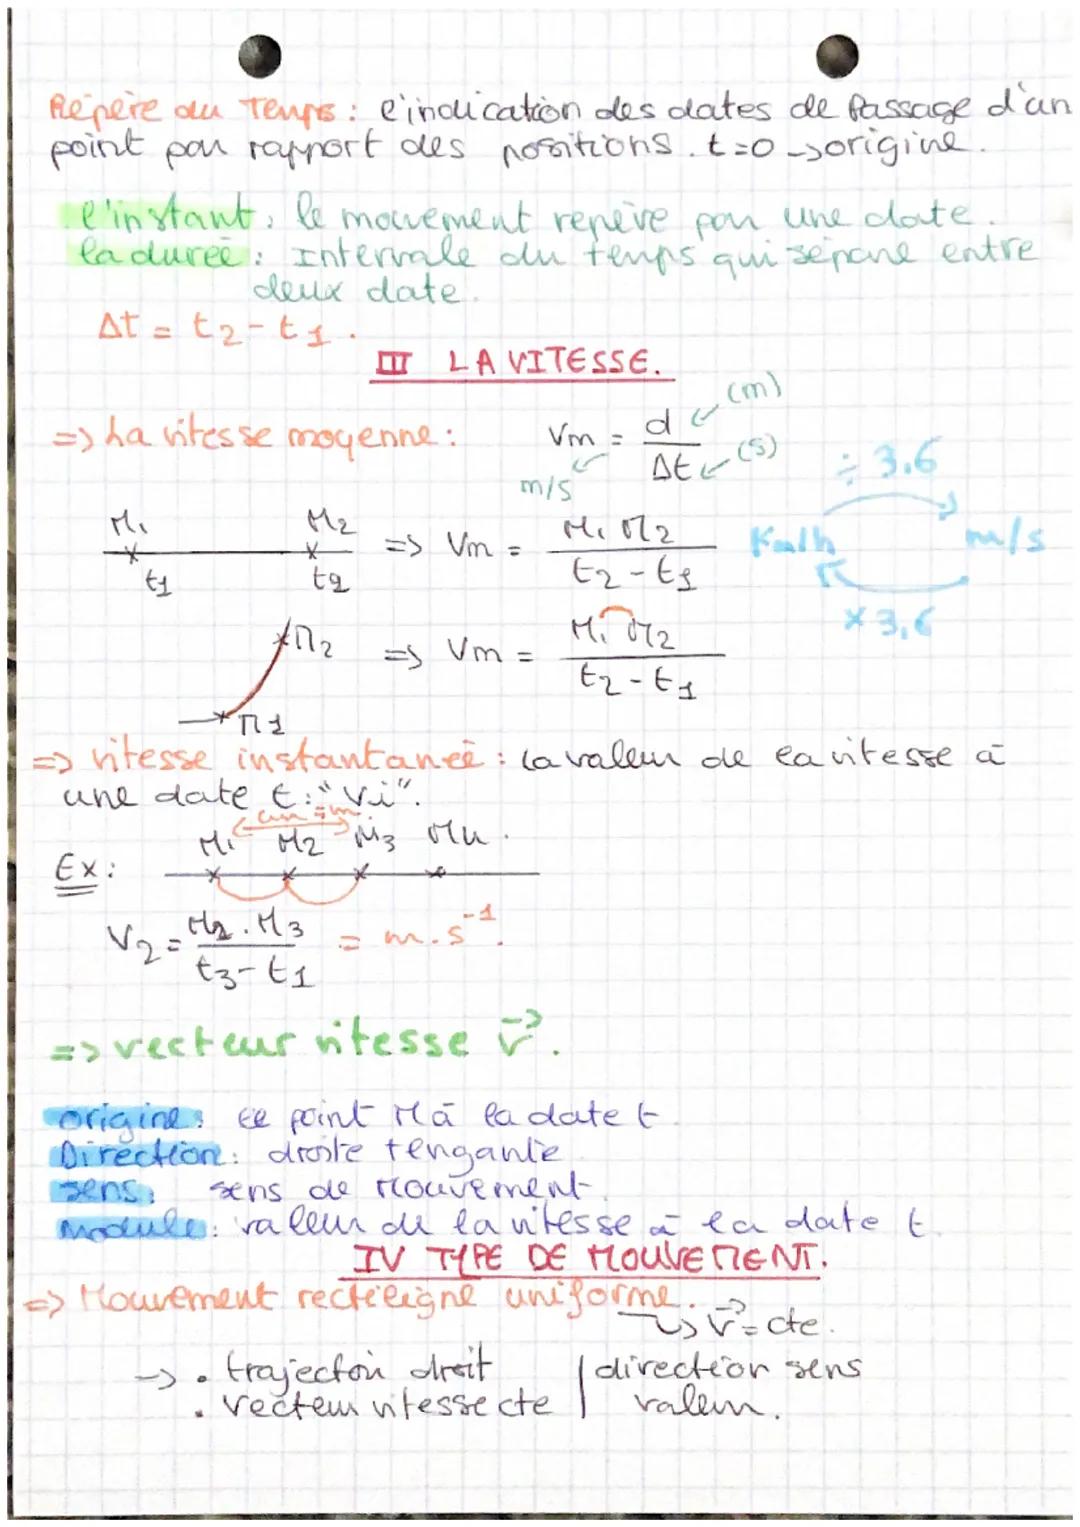 Repère du Temps : l'indication des dates de Passage d'un
point par rapport des positions. t=0 → origine.
l'instant : le mouvement repère par une date.
la durée : Intervale du temps qui séparne entre
deux date.
Δt = t2 - t1.
III LA VITESSE.
=> La vitesse moyenne : Vm = d / Δt (m) (s) m/s
÷ 3.6
Km/h m/s
× 3,6
M1 M2 => Vm = M1 M2 / t2 - t1
t1 t2
M2 => Vm = M1 M2 / t2 - t1
M1
=> vitesse instantaneé : la valeur de la vitesse à
une date t : "Vi".
M1 M2 M3 M4.
Ex :
V2 = M2.M3 / t3 - t1 = m.s⁻¹.
=> vecteur vitesse v⃗.
origine : le point M à la date t
Direction : droite tengante
sens : sens de mouvement.
Module : valeur de la vitesse à la date t.
IV TYPE DE MOUVEMENT.
=> Mouvement rectiligne uniforme.
→ v⃗ = cte.
→ • trajectoir droit | direction sens
• vecteur vitesse cte | valeur.